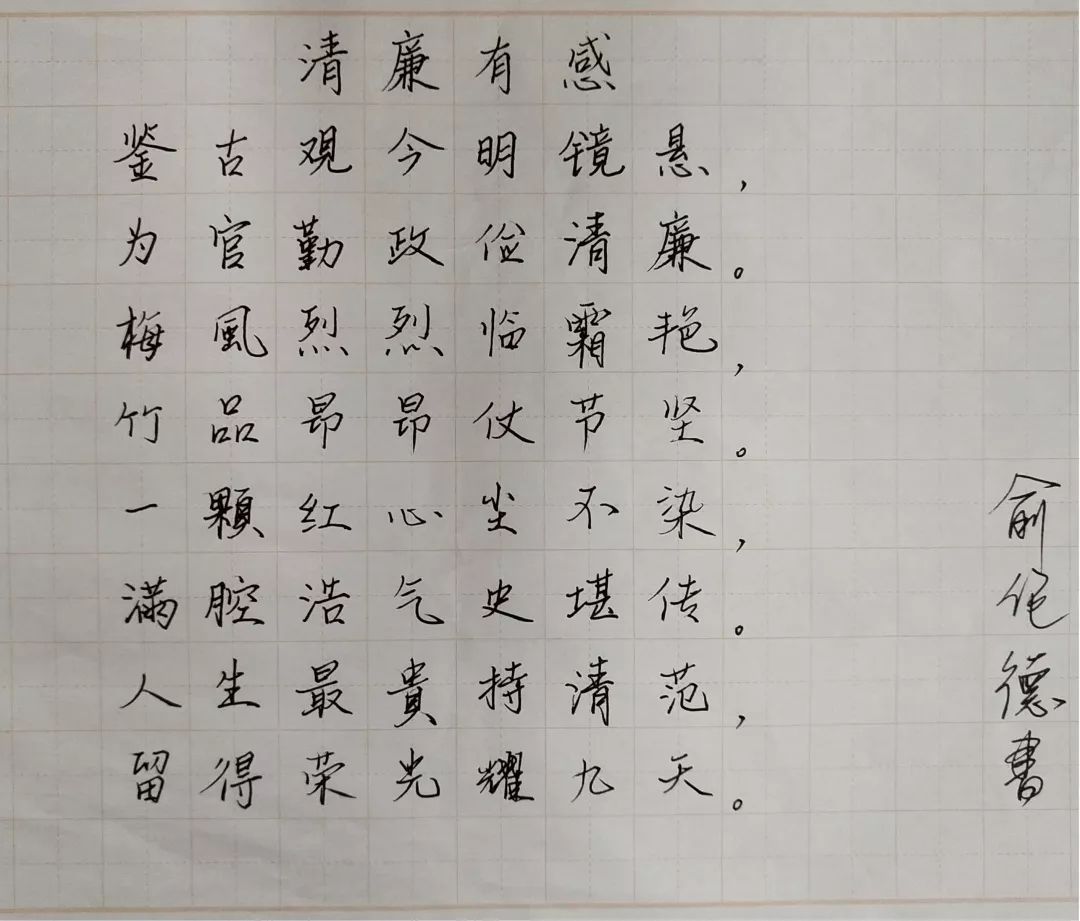 清廉有感
鉴古观今明镜悬，
为官勤政俭清廉。
梅風烈烈临霜艳，
竹品昂昂仗节坚。
一颗红心尘不染，
滿腔浩气史堪传。
人生最貴持清范，
留得荣光耀九天。
俞德書